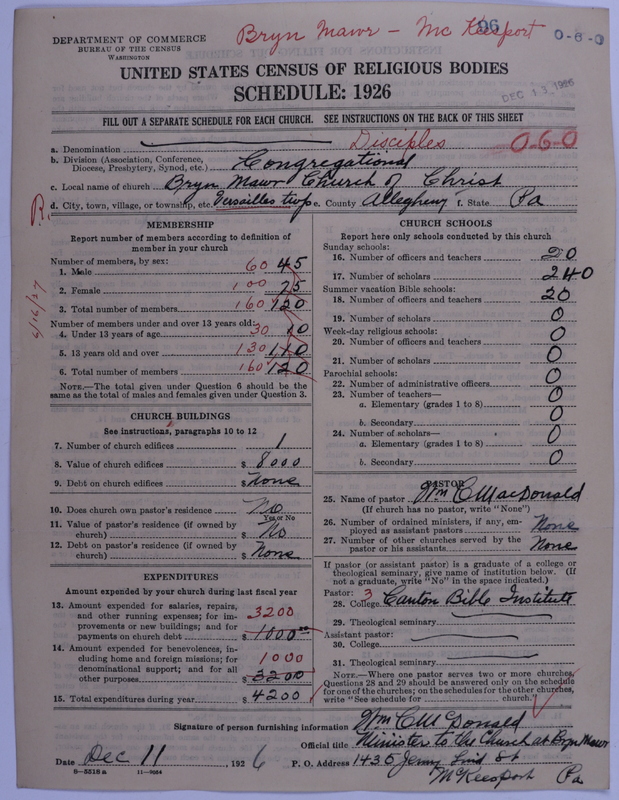 Bryn Mawr - McKeesport
96
0-6-0
DEPARTMENT OF COMMERCE
BUREAU OF THE CENSUS
WASHINGTON
UNITED STATES CENSUS OF RELIGIOUS BODIES
SCHEDULE: 1926
DEC 13 1926
FILL OUT A SEPARATE SCHEDULE FOR EACH CHURCH. SEE INSTRUCTIONS ON THE BACK OF THIS SHEET
a. Denomination Disciples 0-6-0
b. Division (Association, Conference,
Diocese, Presbytery, Synod, etc.) Congregational
c. Local name of church Bryn Mawr Church of Christ
d. City, town, village, or township, etc. Versailles twp e. County Allegheny f. State Pa
MEMBERSHIP
Report number of members according to definition of
member in your church
Number of members, by sex:
1. Male 60 45
2. Female 100 75
3. Total number of members 160 120
Number of members under and over 13 years old:
4. Under 13 years of age 30 10
5. 13 years old and over 130 110
6. Total number of members 160 120
NOTE.—The total given under Question 6 should be the
same as the total of males and females given under Question 3.
CHURCH BUILDINGS
See instructions, paragraphs 10 to 12
7. Number of church edifices 1
8. Value of church edifices $ 8000
9. Debt on church edifices $ None
10. Does church own pastor's residence? No
Yes or No
11. Value of pastor's residence (if owned by
church) $ No
12. Debt on pastor's residence (if owned by
church) $ None
EXPENDITURES
Amount expended by your church during last fiscal year
13. Amount expended for salaries, repairs,
and other running expenses; for im-
provements or new buildings; and for
payments on church debt 3200 $ 1000.00
14. Amount expended for benevolences, in-
cluding home and foreign missions; for
denominational support; and for all
other purposes 1000 $ 3200
15. Total expenditures during year $ 4200
CHURCH SCHOOLS
Report here only schools conducted by this church
Sunday schools:
16. Number of officers and teachers 20
17. Number of scholars 240
Summer vacation Bible schools:
18. Number of officers and teachers 20
19. Number of scholars 0
Week-day religious schools:
20. Number of officers and teachers 0
21. Number of scholars 0
Parochial schools:
22. Number of administrative officers 0
23. Number of teachers—
a. Elementary (grades 1 to 8) 0
b. Secondary 0
24. Number of scholars—
a. Elementary (grades 1 to 8) 0
b. Secondary 0
PASTOR
25. Name of pastor Wm C MacDonald
(If church has no pastor, write "None")
26. Number of ordained ministers, if any, em-
ployed as assistant pastors None
27. Number of other churches served by the
pastor or his assistants None
If pastor (or assistant pastor) is a graduate of a college or
theological seminary, give name of institution below. (If
not a graduate, write "No" in the space indicated.)
Pastor: 3
28. College Canton Bible Institute
29. Theological seminary
Assistant pastor:
30. College
31. Theological seminary
NOTE.—Where one pastor serves two or more churches,
Questions 28 and 29 should be answered only on the schedule
for one of the churches; on the schedules for the other churches,
write "See schedule for church."
Signature of person furnishing information Wm C McDonald
Official title Minister to the Church at Bryn Mawr
Date Dec 11, 1926 P. O. Address 1435 Jenny Lind St
McKeesport Pa
8-5518 a 11-9054